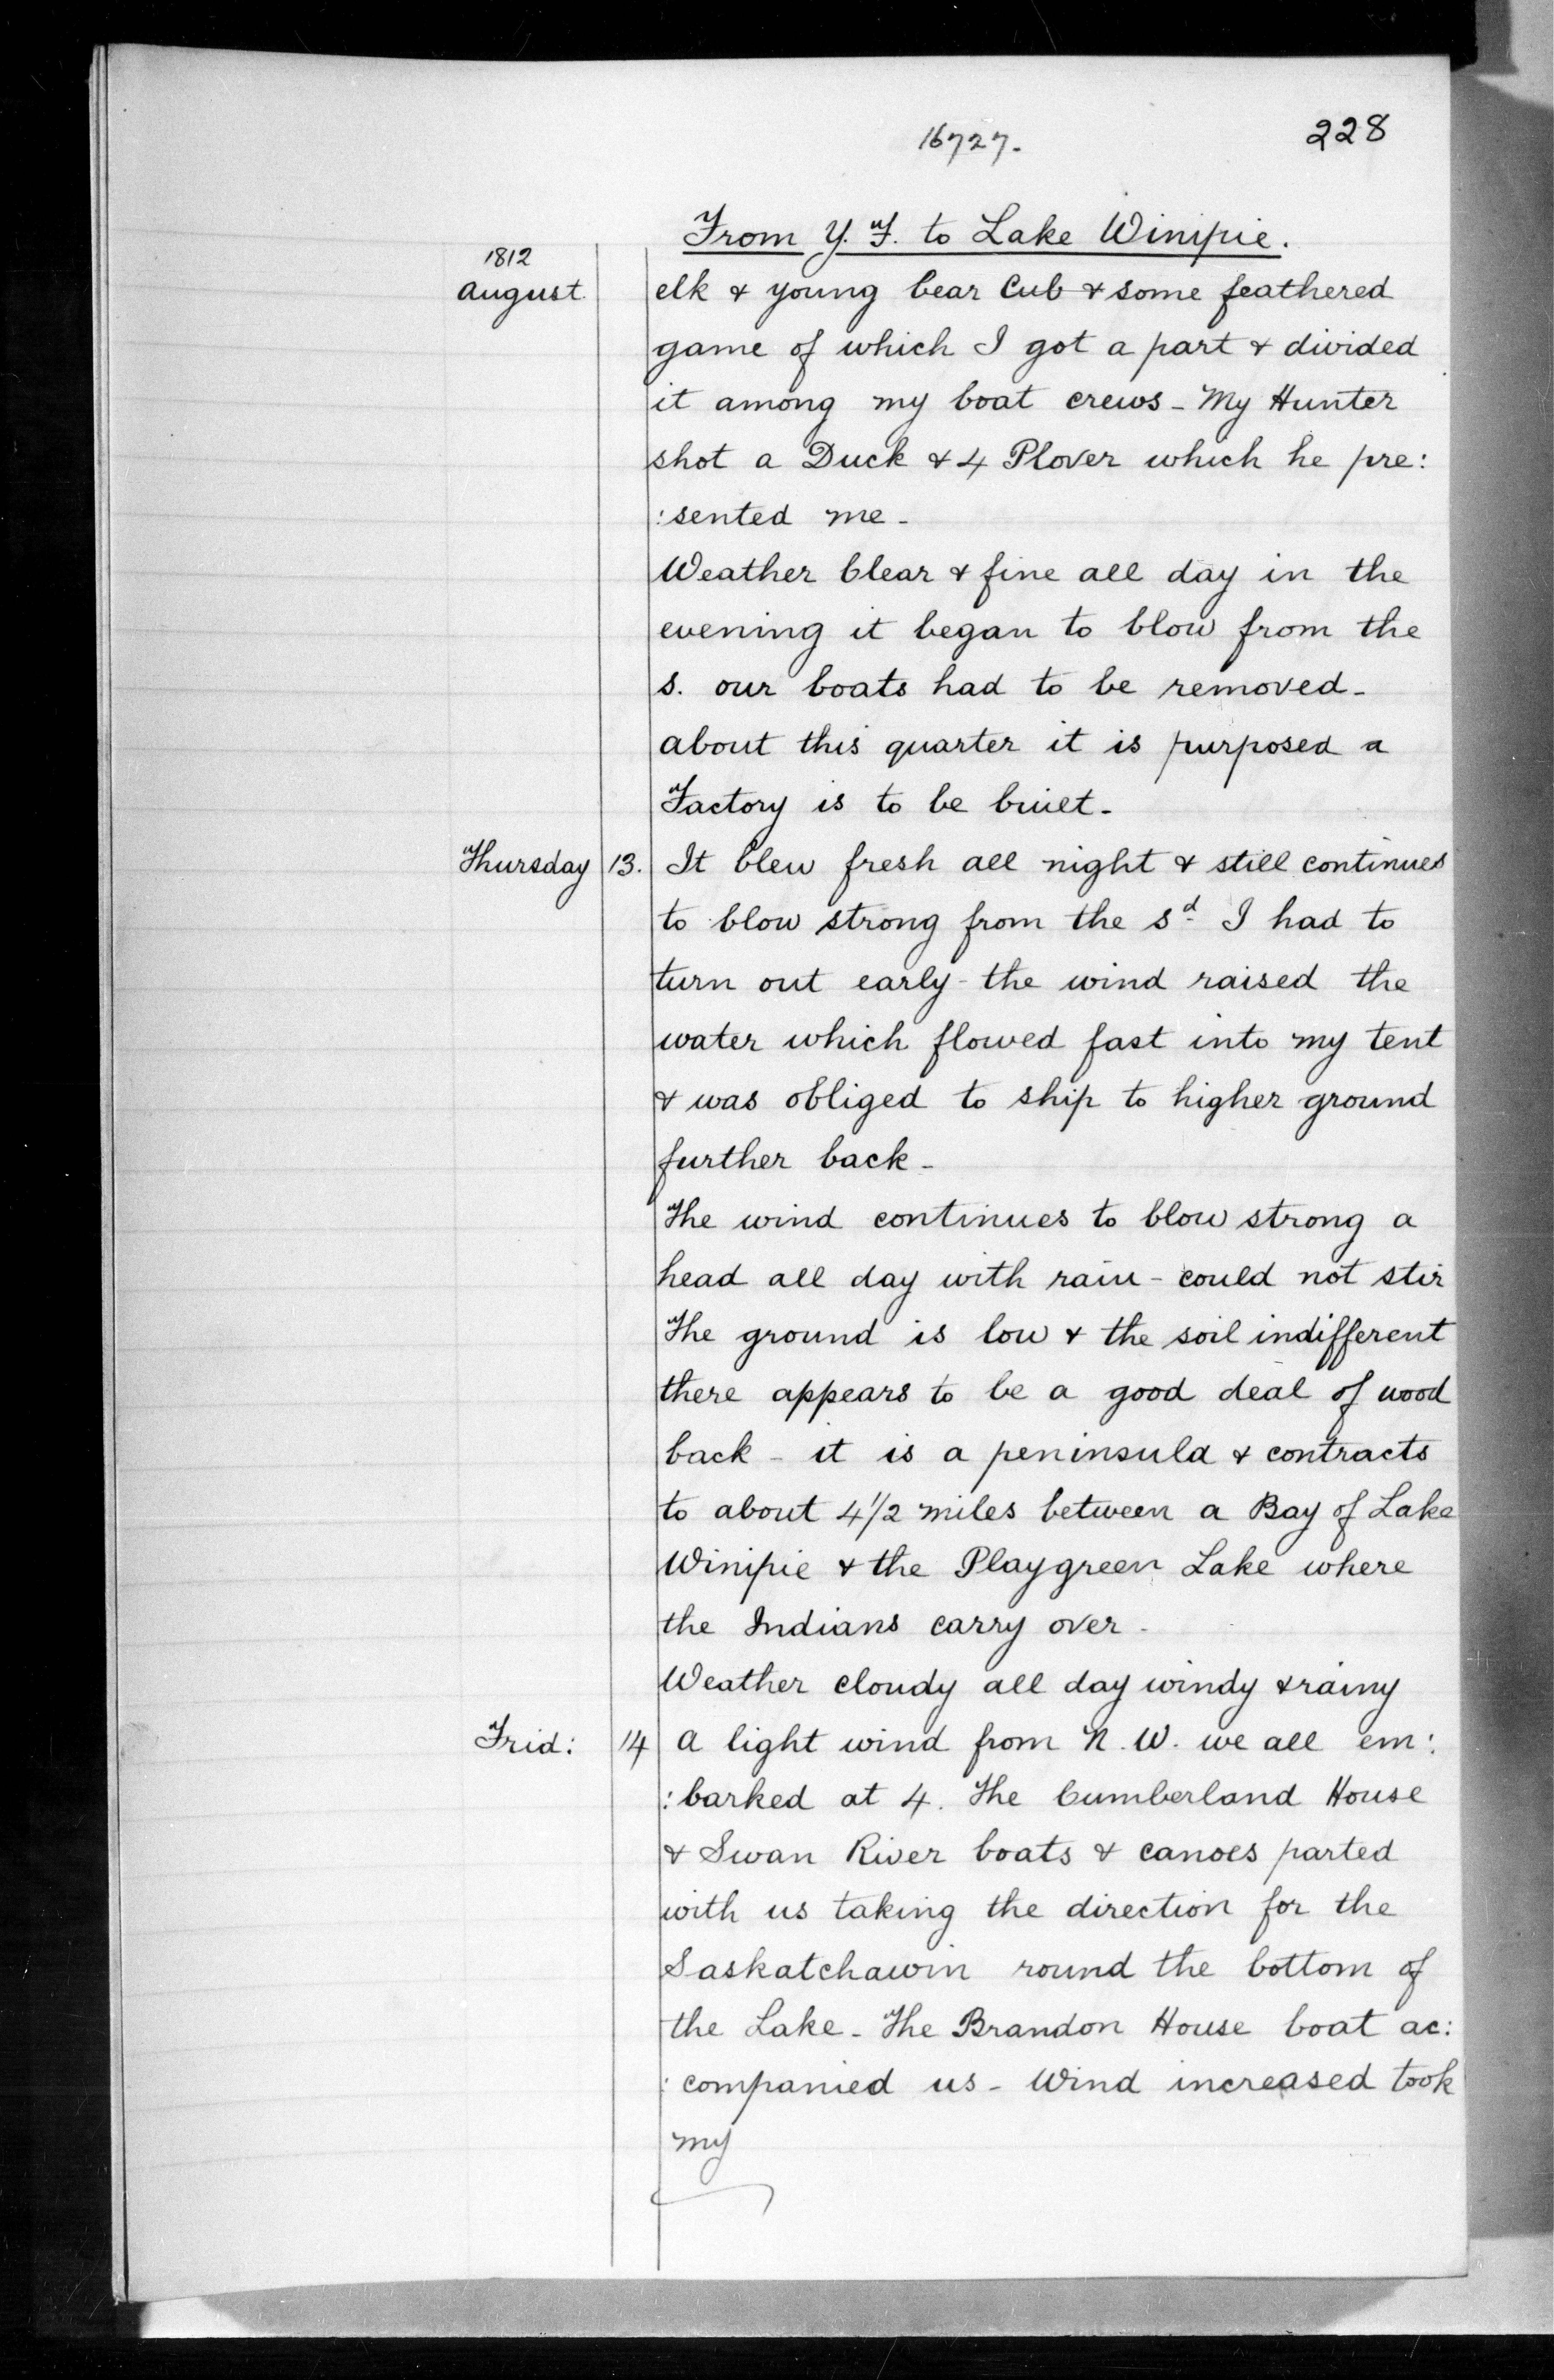 16727.
228
From Y. F. to Lake Winipie.
1812
August
elk & young bear Cub & some feathered
game of which I got a part & divided
it among my boat crews - My Hunter
shot a Duck & 4 Plover which he pre:
:sented me -
Weather Clear & fine all day in the
evening it began to blow from the
S. our boats had to be removed -
about this quarter it is purposed a
Factory is to be built -
Thursday 13. It blew fresh all night & still continues
to blow strong from the Sd I had to
turn out early - the wind raised the
water which flowed fast into my tent
& was obliged to ship to higher ground
further back -
The wind continues to blow strong a
head all day with rain - could not stir
The ground is low & the soil indifferent
there appears to be a good deal of wood
back - it is a peninsula & contracts
to about 4 1/2 miles between a Bay of Lake
Winipie & the Playgreen Lake where
the Indians carry over -
Weather cloudy all day windy & rainy
Frid: 14 A light wind from N. W. we all em:
:barked at 4. The Cumberland House
& Swan River boats & canoes parted
with us taking the direction for the
Saskatchawin round the bottom of
the Lake - The Brandon House boat ac:
:companied us - Wind increased took
my